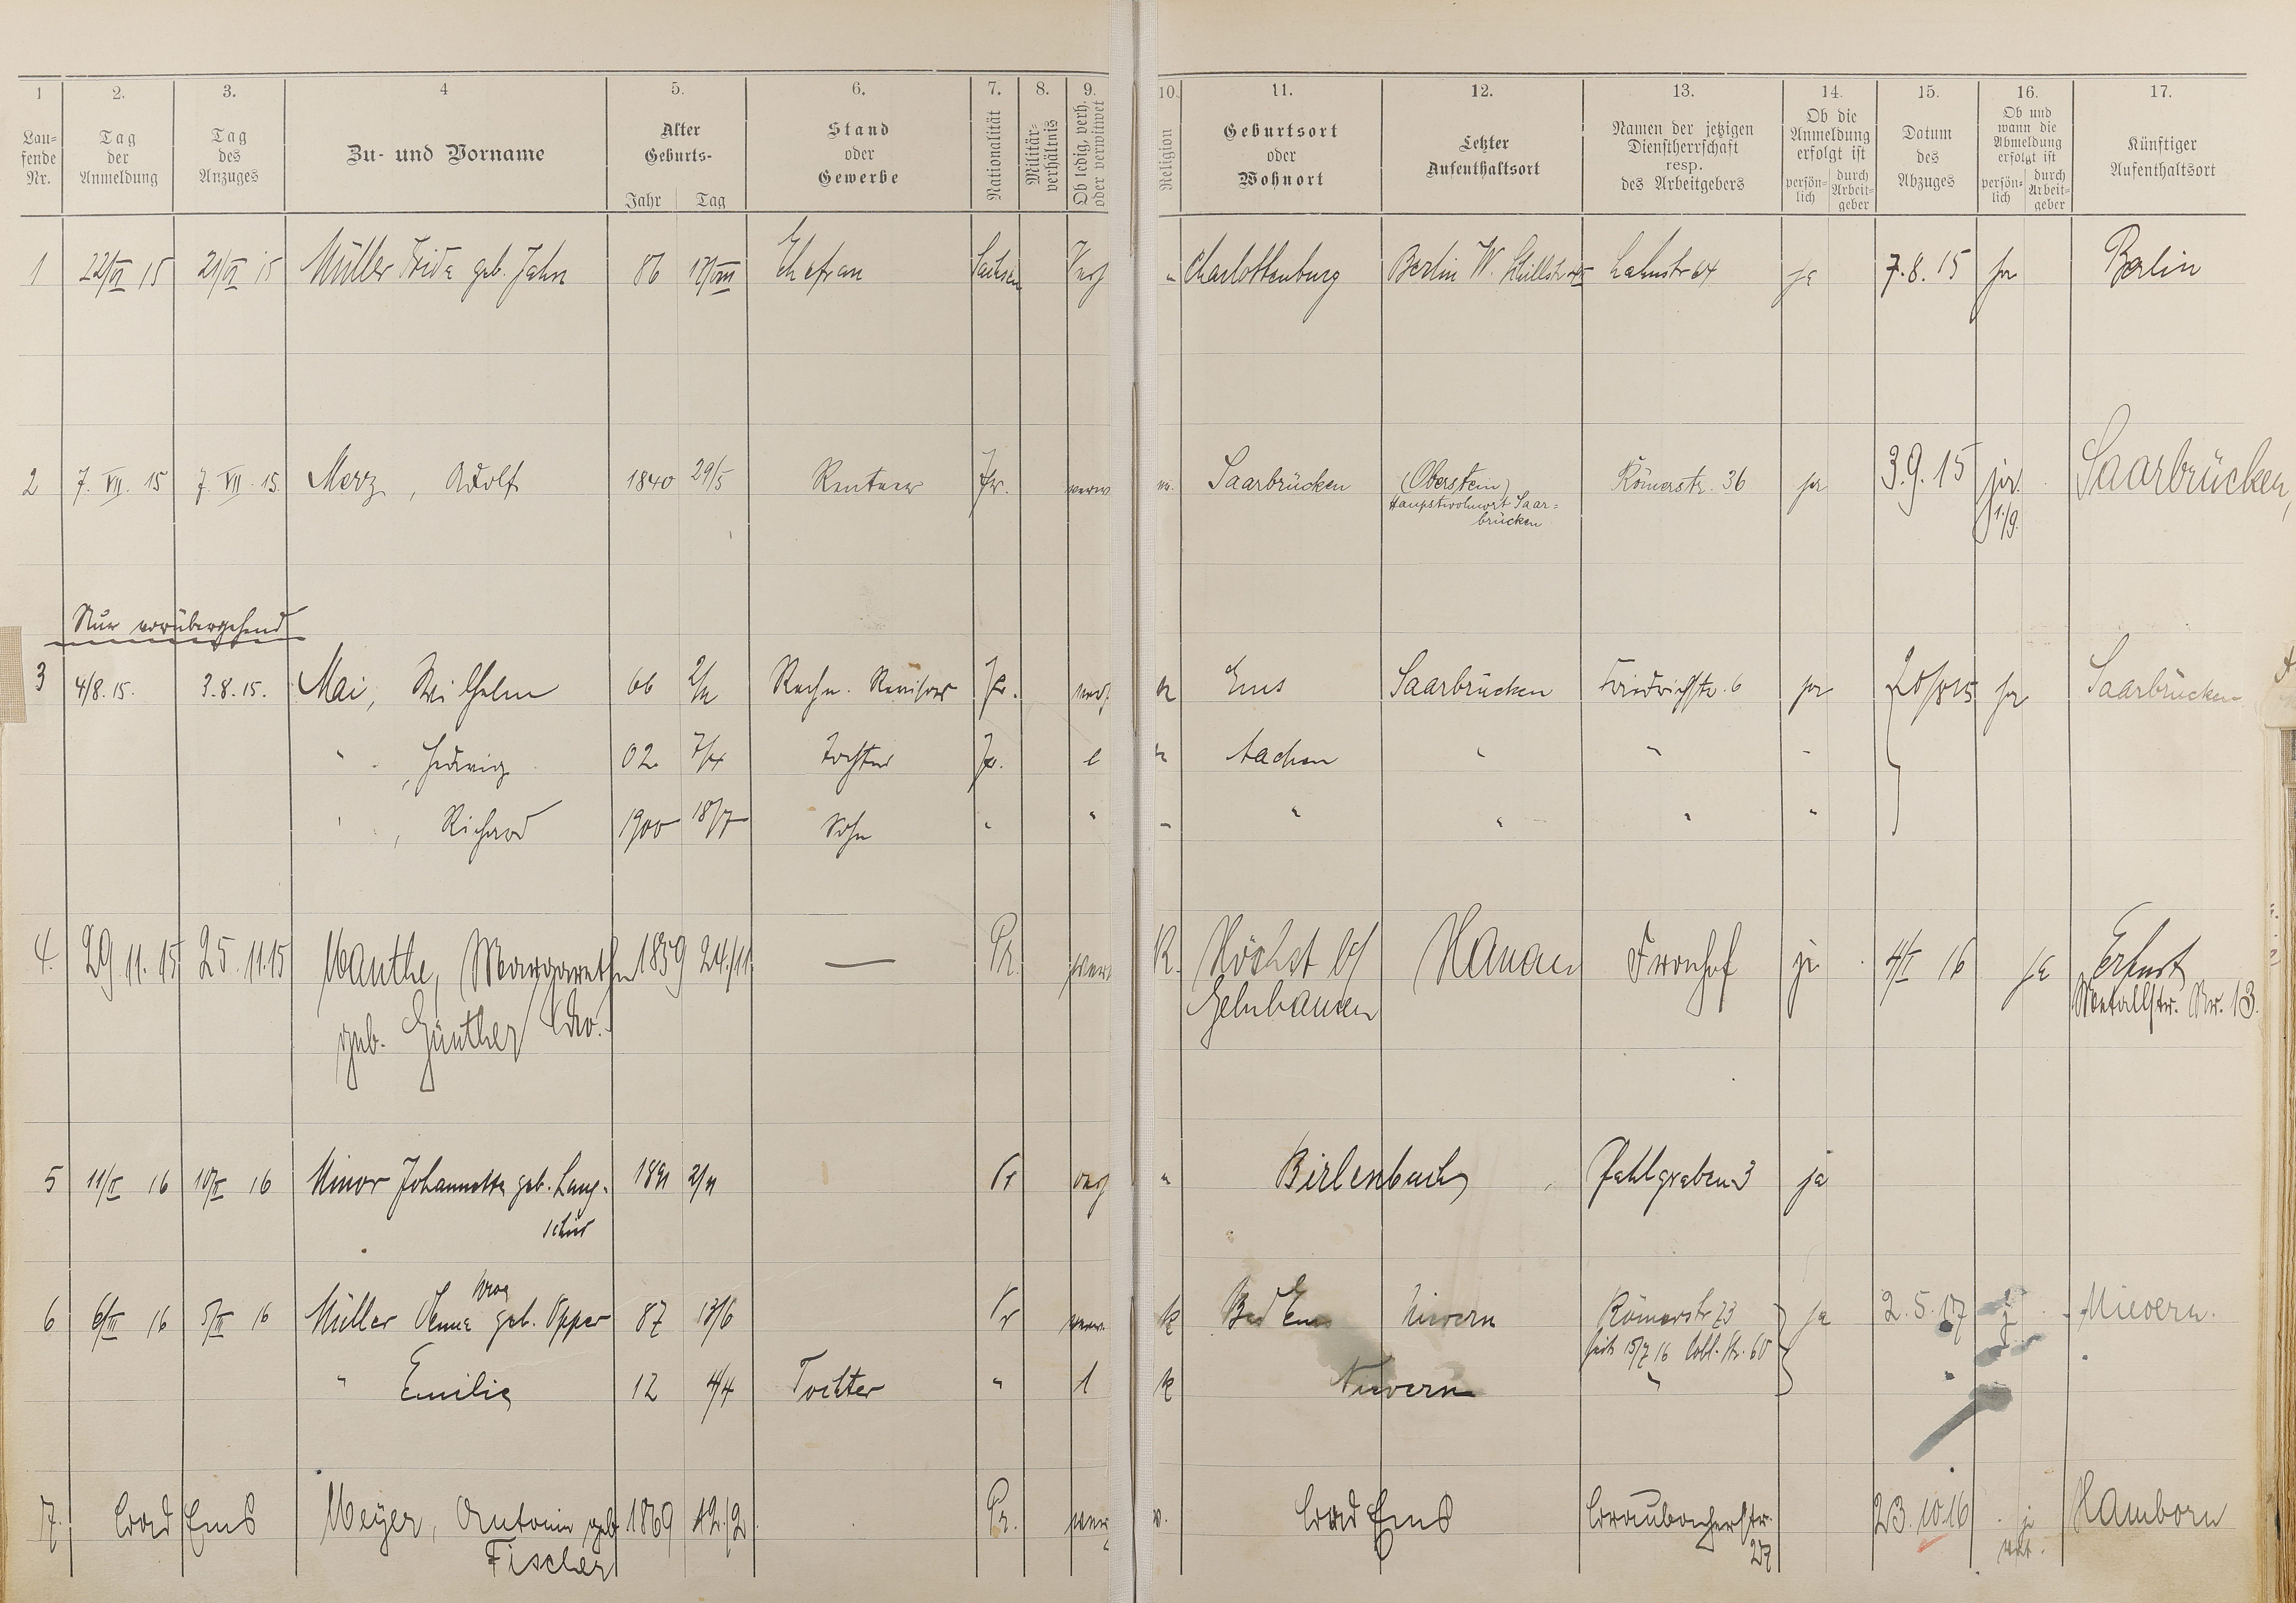 1 2. 3. 4 5. 6. 7. 8. 9. 10. 11. 12. 13. 14. 15. 16. 17.
Lau-
fende
Nr.
Tag
der
Anmeldung
Tag
des
Anzuges
Zu- und Vorname
Alter
Geburts-
Jahr Tag
Stand
oder
Gewerbe
Nationalität
Militär-
verhältnis
Ob ledig, verh.
oder verwitwet
Religion
Geburtsort
oder
Wohnort
Letzter
Aufenthaltsort
Namen der jetzigen
Dienstherrschaft
resp.
des Arbeitgebers
Ob die
Anmeldung
erfolgt ist
persön-
lich
durch
Arbeit-
geber
Datum
des
Abzuges
Ob und
wann die
Abmeldung
erfolgt ist
persön-
lich
durch
Arbeit-
geber
Künftiger
Aufenthaltsort
1 22/VI 15 21/VI 15 Müller Frida geb. Jahn 86 Ehefrau Sachsen Charlottenburg Berlin W. Lahnstr 64 ja 7.8.15 ja Berlin
2 7. VII. 15 7. VII. 15. Merz, Adolf 1840 29/5 Rentner Pr. verw Saarbrücken (Oberstein) Römerstr. 36 ja 3.9.15 ja. Saarbrücken,
Hauptwohnort Saar=
brücken
1/9.
Nur vorübergehend
3 4/8.15. 3.8.15. Mai, Wilhelm 66 Rechn. Revisor Pr. Ems Saarbrücken Friedrichstr. 6 ja ja Saarbrücken
" , Hedwig 02 Tochter Pr. l Aachen " " "
" , Richard 1900 18/7 Sohn " " " " " " "
4. 29.11.15 25.11.15 Manthe, Margarethe 1859 24./11. — Pr. verw R. Höchst b/ Hanau Fronhof ja 4/I 16 ja Erfurt
geb. Günther Gelnhausen Metallstr. Nr. 13.
5 11/II 16 10/II 16 Minor Johannette geb. Lang- 1891 Pr " Birlenbach Pfahlgraben 3 ja
schied
6 6/III 16 5/III 16 Müller geb. Opper 87 13/6 Pr verw. k Bad Ems Nievern Römerstr 73 ja 2.5.17 j Nievern.
seit 15/7 16 Cobl. Str. 60
" Emilie 12 4/4 Tochter " l k Nievern " "
7. Bad Ems Meyer, Antonie geb 1869 12./2. Pr. Bad Ems Braubacherstr. 23.10.16 ja Hamborn
Fischer 27